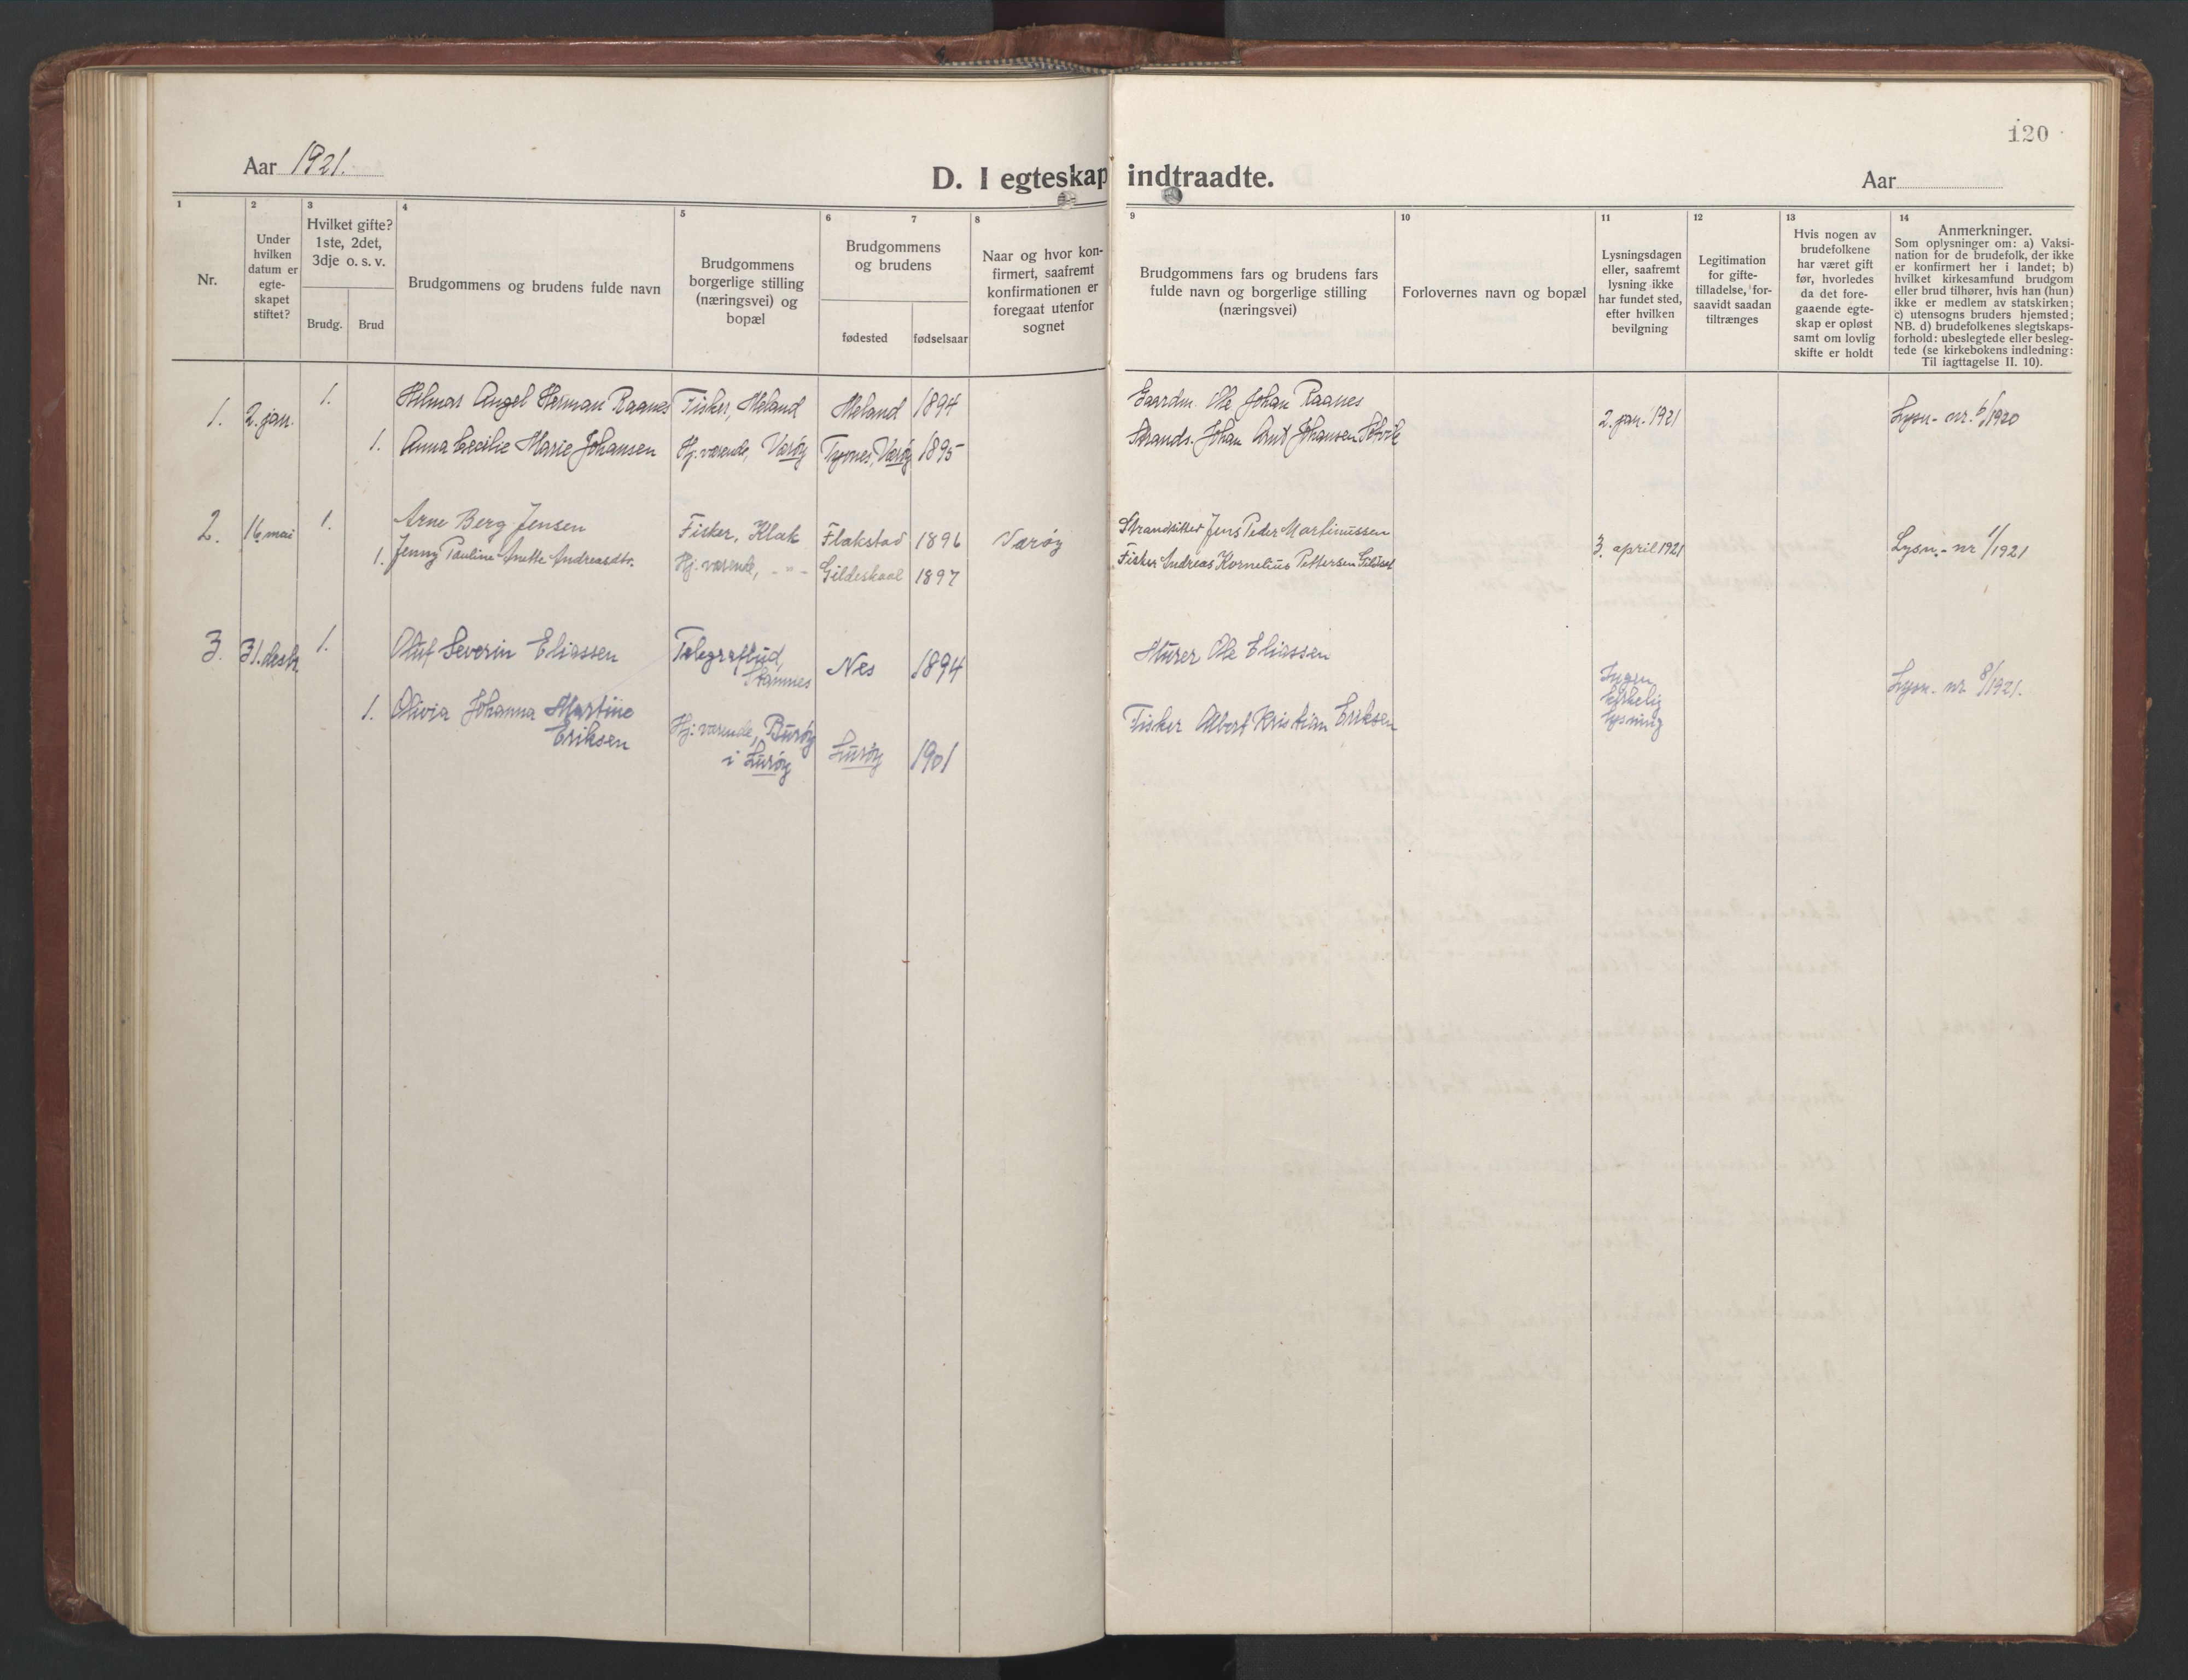 120
Aar 1921.
D. I egteskap indtraadte.
Aar
1
2
3
4
5
6
7
8
9
10
11
12
13
14
Nr.
Under
hvilken
datum er
egte-
skapet
stiftet?
Hvilket gifte?
1ste, 2det,
3dje o. s. v.
Brudg.
Brud
Brudgommens og brudens fulde navn
Brudgommens
borgerlige stilling
(næringsvei) og
bopæl
Brudgommens
og brudens
fødested
fødselsaar
Naar og hvor kon-
firmert, saafremt
konfirmationen er
foregaat utenfor
sognet
Brudgommens fars og brudens fars
fulde navn og borgerlige stilling
(næringsvei)
Forlovernes navn og bopæl
Lysningsdagen
eller, saafremt
lysning ikke
har fundet sted,
efter hvilken
bevilgning
Legitimation
for gifte-
tilladelse, for-
saavidt saadan
tiltrænges
Hvis nogen av
brudefolkene
har været gift
før, hvorledes
da det fore-
gaaende egte-
skap er opløst
samt om lovlig
skifte er holdt
Anmerkninger.
Som oplysninger om: a) Vaksi-
nation for de brudefolk, der ikke
er konfirmert her i landet; b)
hvilket kirkesamfund brudgom
eller brud tilhører, hvis han (hun)
ikke er medlem av statskirken;
c) utensogns bruders hjemsted;
NB. d) brudefolkenes slegtskaps-
forhold: ubeslegtede eller besleg-
tede (se kirkebokens indledning:
Til iagttagelse II. 10).
1. 2. jan. 1. Hilmar Angel Herman Raanes Fisker, Meland Meland 1894 Gaardm. Ole Johan Raanes 2. jan. 1921 Lysn.- nr. 6/1920
1. Anna Cecilie Marie Johansen Hj. værende, Værøy Værøy 1895 Strands. Johan Arnt Johansen
2. 16 mai 1. Arne Berg Jensen Fisker, Klak Flakstad 1896 Værøy Strandsitter Jens Peder Martinussen 3. april 1921 Lysn.- nr 1/1921
1. Jenny Pauline Anette Andreasdtr. Hj. værende, -"- Gildeskaal 1897 Fisker Andreas Kornelius Pettersen
3. 31. desb. 1. Oluf Severin Eliassen Telegrafbud, Nes 1894 Murer Ole Eliassen Lysn.- nr 8/1921.
Stamnes
Ingen
kirkelig
lysning
1. Olivia Johanna Martine
Eriksen
Hj: værende, Burøy
i Lurøy
Lurøy 1901 Fisker Albert Kristian Eriksen